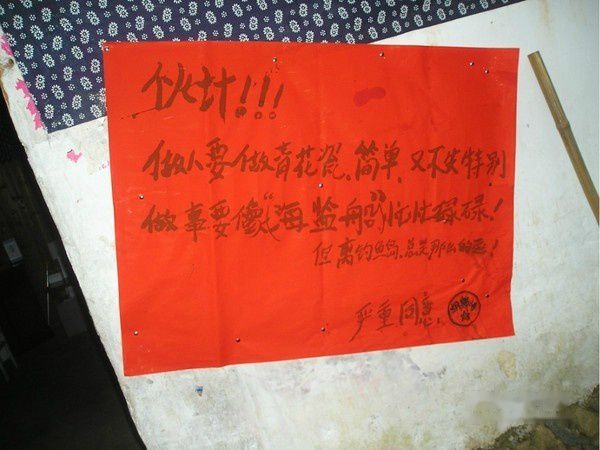 伙计!!!
做人要做青花瓷、简单、又不失特别
做事要像“海监船”忙忙碌碌!
但离钓鱼岛、总是那么的远!
严重同意.